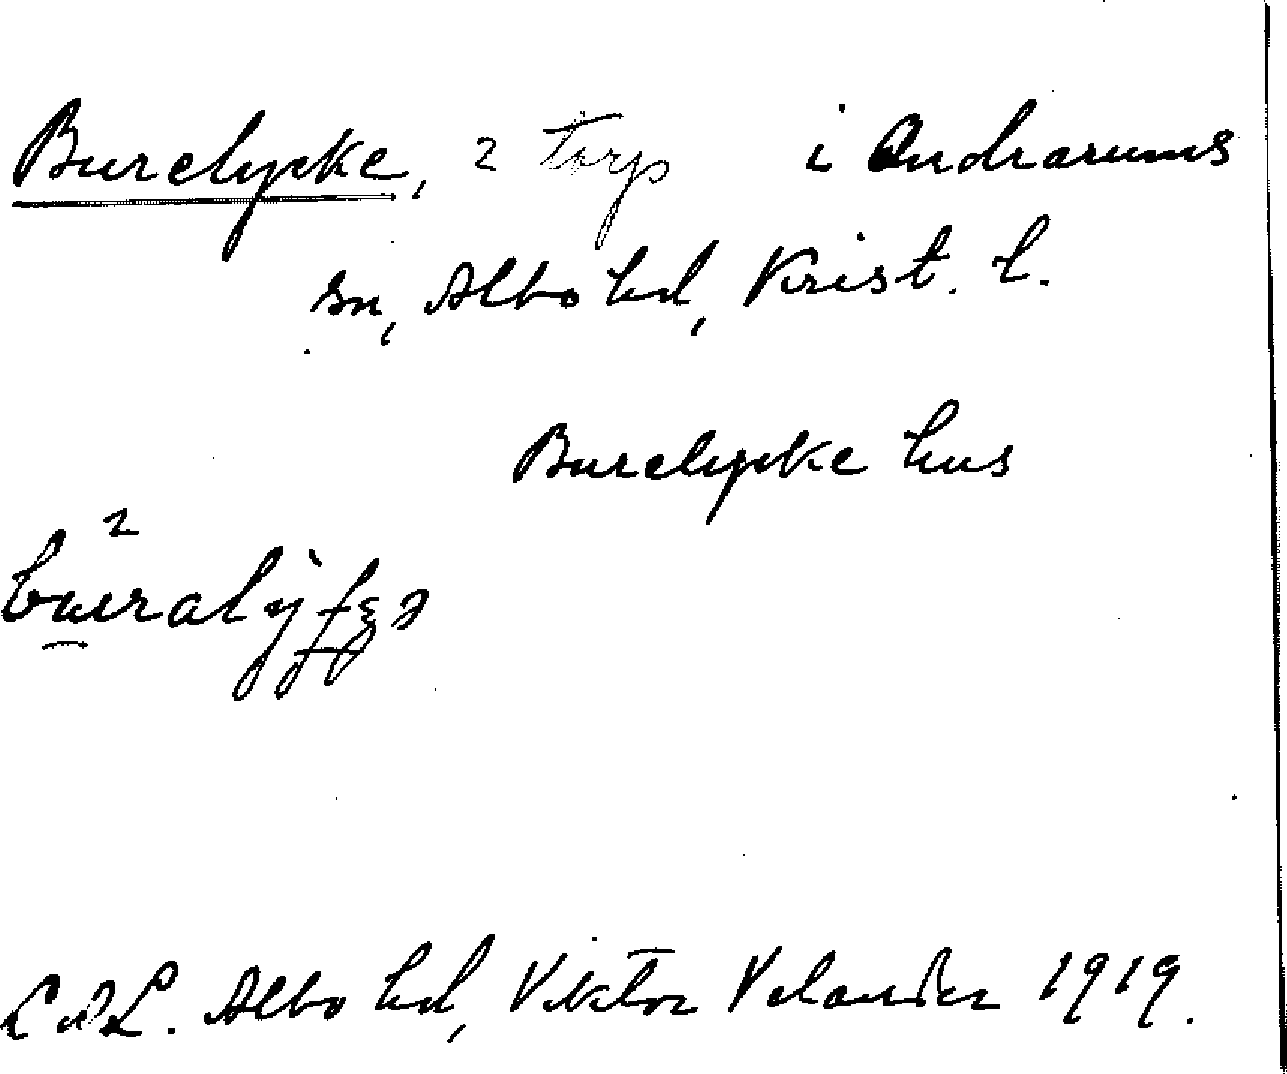 Burelycke, 2 torp i Andrarums
sn, Albo hd, Krist. l.
Burelycke hus
L.D.L. Albo hd, Viktor Velander 1919.